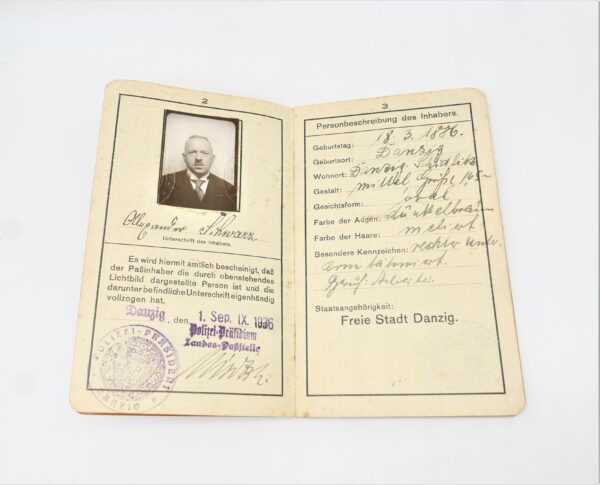 2
Schwarz
Unterschrift des Inhabers.
Es wird hiermit amtlich bescheinigt, daß
der Paßinhaber die durch obenstehendes
Lichtbild dargestellte Person ist und die
darunter befindliche Unterschrift eigenhändig
vollzogen hat.
Danzig, den 1. Sep. IX. 1936
Polizei-Präsidium
Landes-Paßstelle
POLIZEI-PRÄSIDENT
DANZIG
3
Personbeschreibung des Inhabers.
Geburtstag: 18. 3. 1876.
Geburtsort: Danzig
Wohnort: Danzig Schidlitz
Gestalt: mittel Größe 1,65
Gesichtsform: oval
Farbe der Augen: dunkelbraun
Farbe der Haare: meliert
Besondere Kennzeichen: rechter Unter-
arm tätowiert.
Beruf: Arbeiter.
Staatsangehörigkeit:
Freie Stadt Danzig.